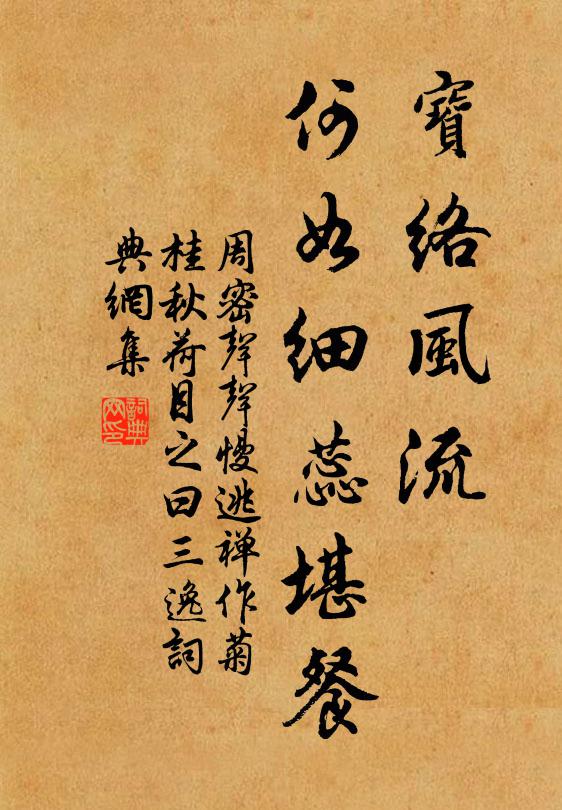 寶絡風流
何如細蕊堪餐
周密聲聲慢逃禪作菊
桂秋荷目之曰三逸詞
典網集
詞典網印